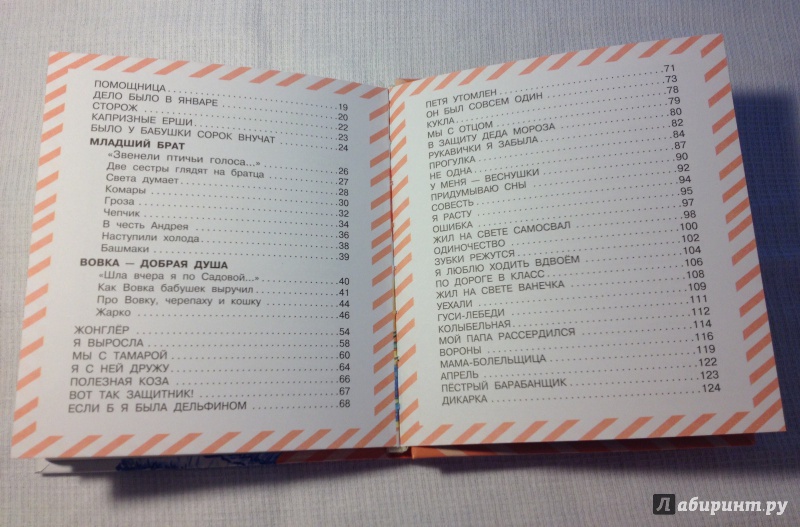 ПОМОЩНИЦА 19
ДЕЛО БЫЛО В ЯНВАРЕ 20
СТОРОЖ 22
КАПРИЗНЫЕ ЕРШИ 23
БЫЛО У БАБУШКИ СОРОК ВНУЧАТ 24
МЛАДШИЙ БРАТ
«Звенели птичьи голоса...» 26
Две сестры глядят на братца 27
Света думает 28
Комары 30
Гроза 32
Чепчик 34
В честь Андрея 36
Наступили холода 38
Башмаки 39
ВОВКА — ДОБРАЯ ДУША
«Шла вчера я по Садовой...» 40
Как Вовка бабушек выручил 41
Про Вовку, черепаху и кошку 44
Жарко 46
ЖОНГЛЁР 54
Я ВЫРОСЛА 58
МЫ С ТАМАРОЙ 60
Я С НЕЙ ДРУЖУ 64
ПОЛЕЗНАЯ КОЗА 66
ВОТ ТАК ЗАЩИТНИК! 67
ЕСЛИ Б Я БЫЛА ДЕЛЬФИНОМ 68
ПЕТЯ УТОМЛЕН 71
ОН БЫЛ СОВСЕМ ОДИН 73
КУКЛА 78
МЫ С ОТЦОМ 79
В ЗАЩИТУ ДЕДА МОРОЗА 80
РУКАВИЧКИ Я ЗАБЫЛА 82
ПРОГУЛКА 84
НЕ ОДНА 87
У МЕНЯ — ВЕСНУШКИ 90
ПРИДУМЫВАЮ СНЫ 92
СОВЕСТЬ 94
Я РАСТУ 95
ОШИБКА 97
ЖИЛ НА СВЕТЕ САМОСВАЛ 98
ОДИНОЧЕСТВО 100
ЗУБКИ РЕЖУТСЯ 102
Я ЛЮБЛЮ ХОДИТЬ ВДВОЁМ 104
ПО ДОРОГЕ В КЛАСС 106
ЖИЛ НА СВЕТЕ ВАНЕЧКА 108
УЕХАЛИ 109
ГУСИ-ЛЕБЕДИ 111
КОЛЫБЕЛЬНАЯ 112
МОЙ ПАПА РАССЕРДИЛСЯ 114
ВОРОНЫ 116
МАМА-БОЛЕЛЬЩИЦА 119
АПРЕЛЬ 122
ПЁСТРЫЙ БАРАБАНЩИК 123
ДИКАРКА 124
Лабиринт.ру